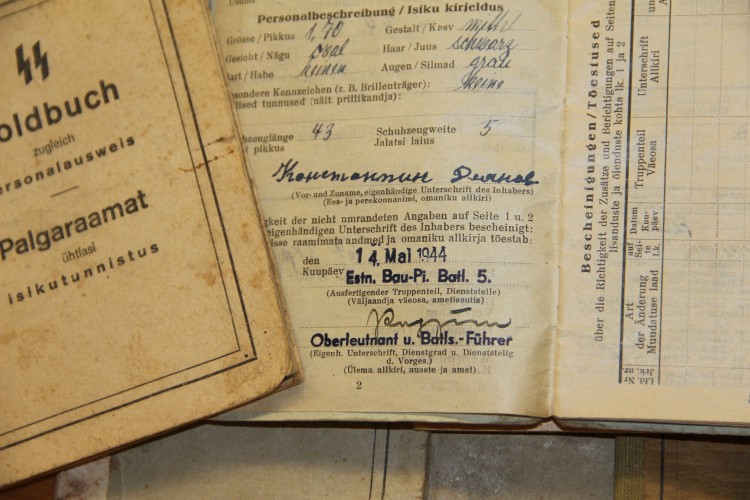 oldbuch
zugleich
ersonalausweis
Palgaraamat
ühtlasi
isikutunnistus
Personalbeschreibung / Isiku kirjeldus
Grösse / Pikkus 1,70 Gestalt / Kasv mittel
Gesicht / Nägu oval Haar / Juus schwarz
art / Habe keinen Augen / Silmad grau
sondere Kennzeichen (z. B. Brillenträger): keine
ilised tunnused (näit. prillikandja):
huzeuglänge 43 Schuhzeugweite 5
i pikkus Jalatsi laius
Константин
(Vor- und Zuname, eigenhändige Unterschrift des Inhabers)
(Ees- ja perekonnanimi, omaniku allkiri)
igkeit der nicht umrandeten Angaben auf Seite 1 u. 2
eigenhändigen Unterschrift des Inhabers bescheinigt:
isse raamimata andmeid ja omaniku allkirja tõestab:
den 14. Mai 1944
Kuupäev Estn. Bau-Pi. Batl. 5.
(Ausfertigender Truppenteil, Dienststelle)
(Väljaandja väeosa, ametiasutis)
Oberleutnant u. Batls.-Führer
(Eigenh. Unterschrift, Dienstgrad u. Dienststellg.
d. Vorges.)
(Ülema allkiri, auaste ja amet)
2
Bescheinigungen / Tõestused
über die Richtigkeit der Zusätze und Berichtigungen auf Seiten
lisanduste ja õienduste kohta lk. 1 ja 2
Lfd. Nr
Jrk. nr.
Art
der Änderung
Muudatuse laad
auf Sei-te
Lk.
Datum
Kuu-päev
Truppenteil
Väeosa
Unterschrift
Allkiri